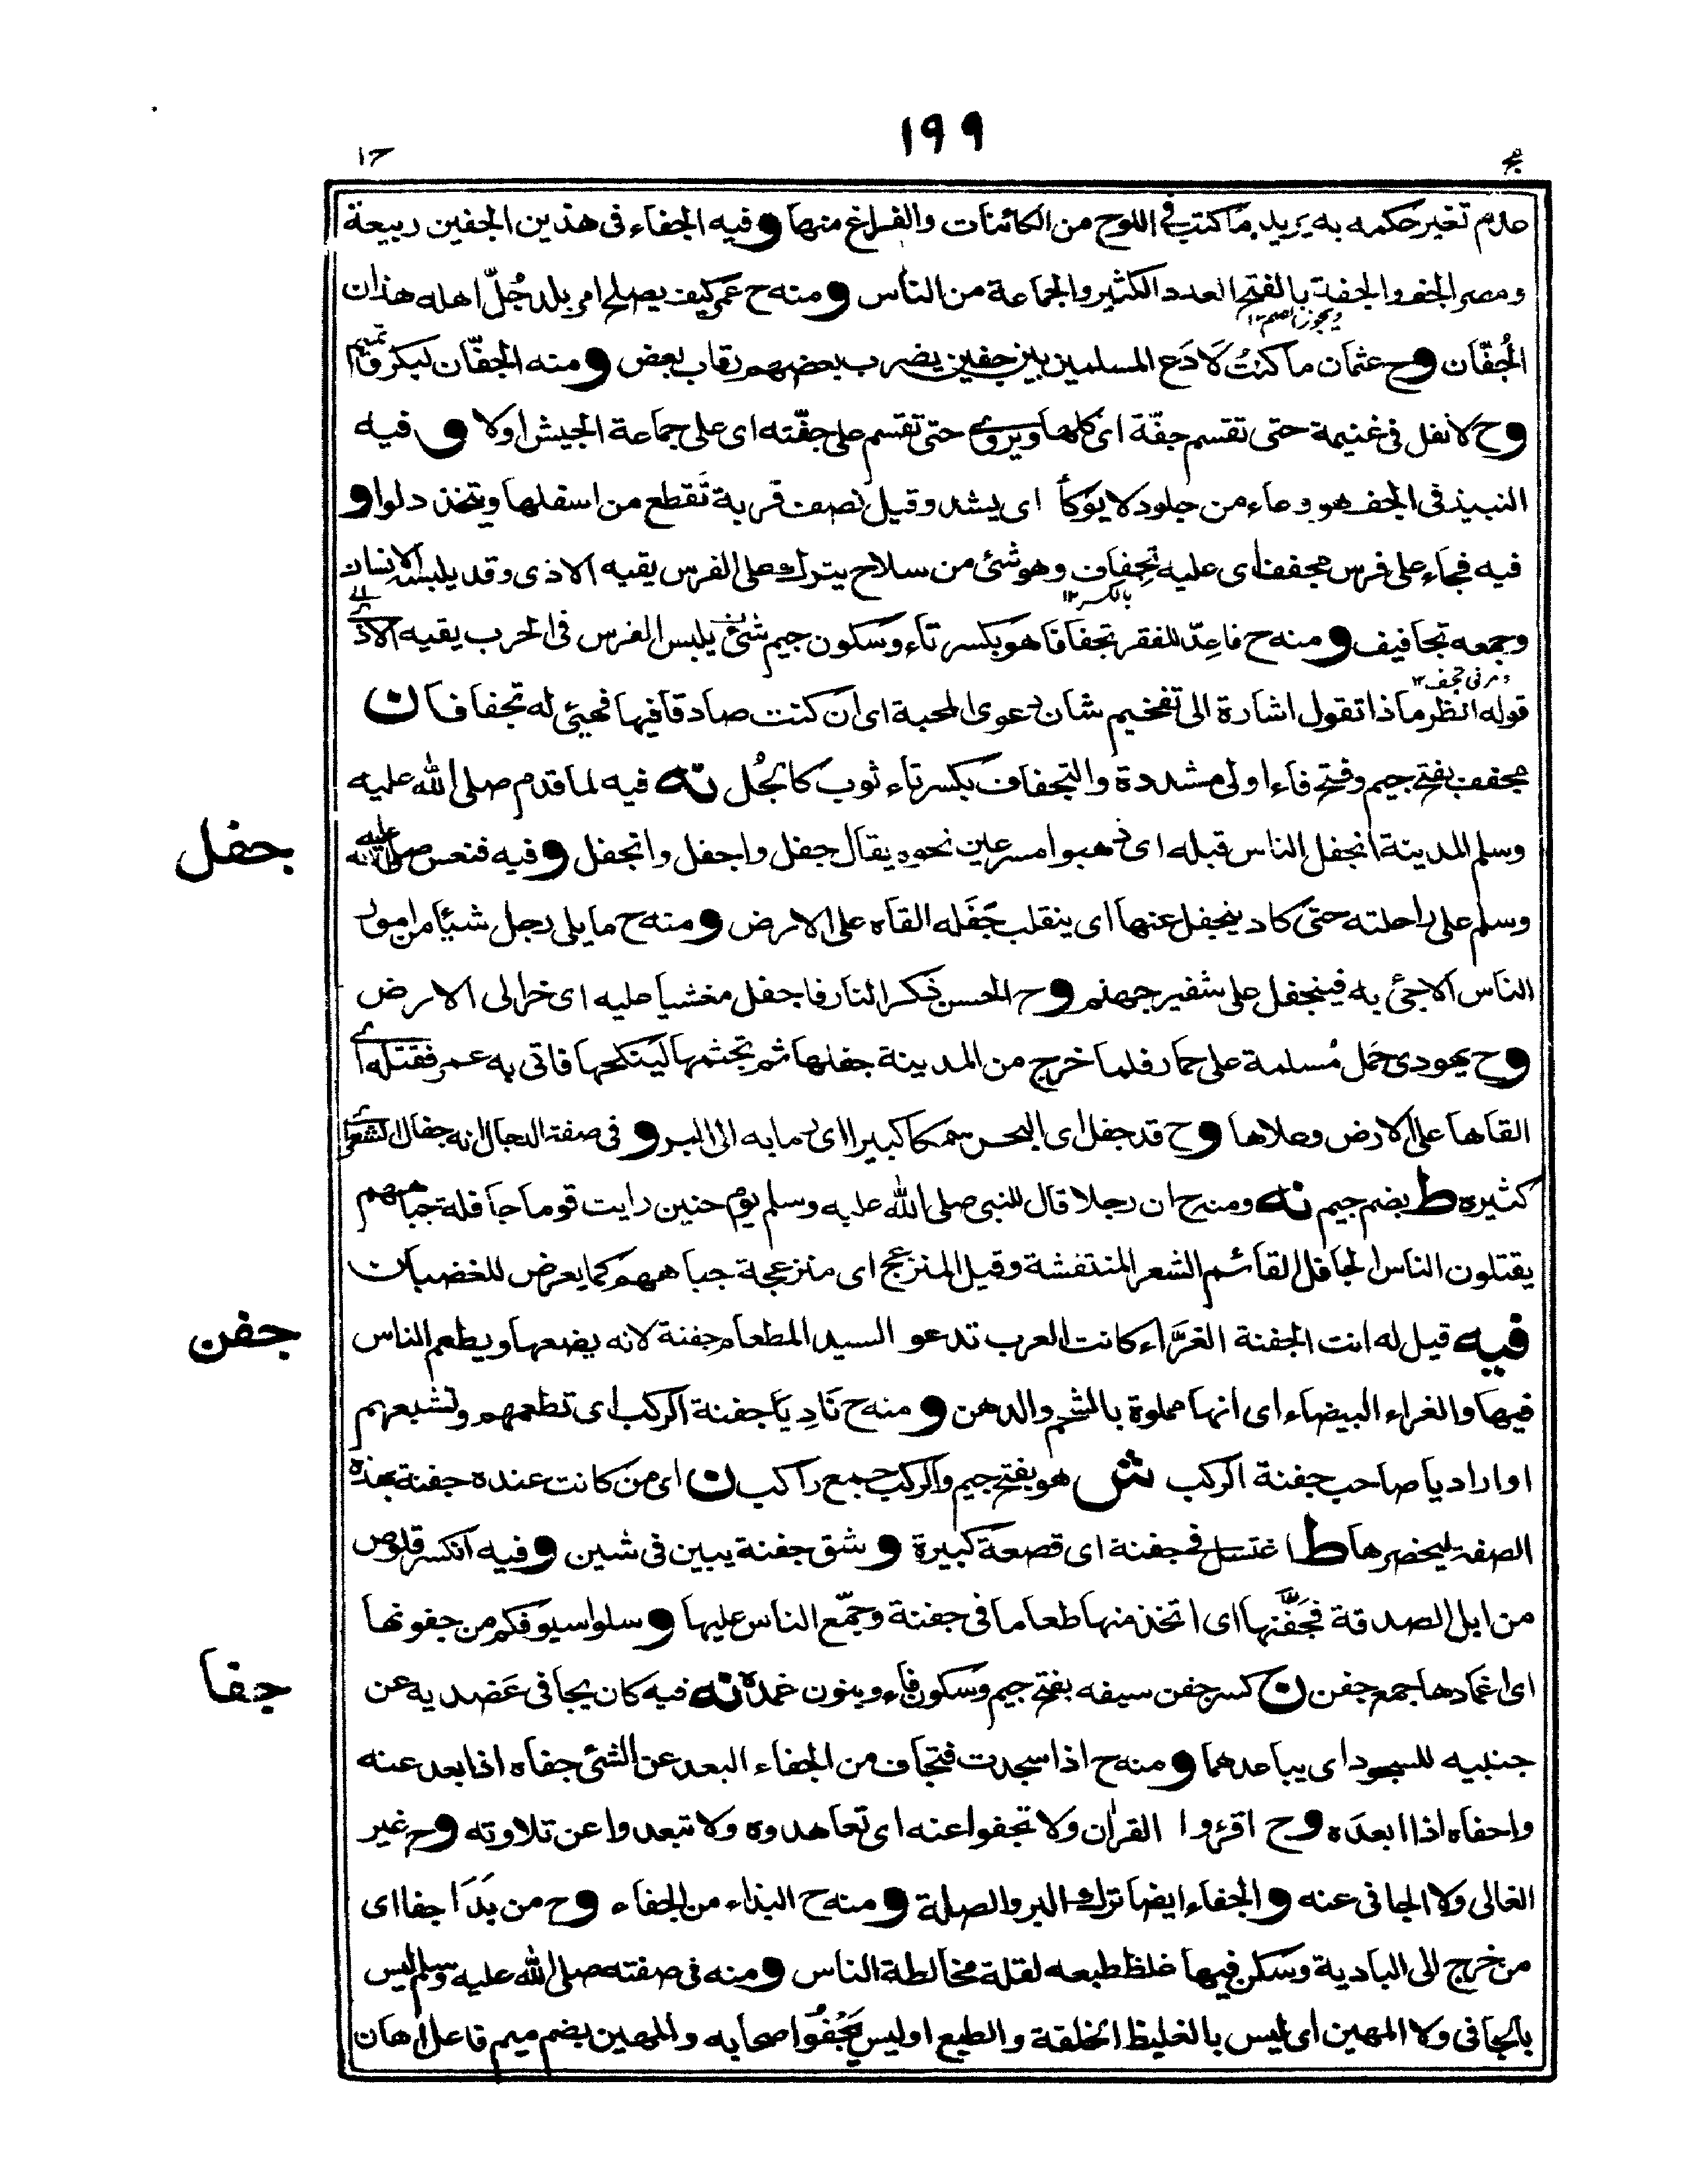 ١٩٩
ج
١٢
عدم تغير حكمه به يريد ما كتب في اللوح من الكائنات والفراغ منها و فيه الجفاء فى هذين الجفين ربيعة
ومضر الجف والجفة بالفتح العدد الكثير والجماعة من الناس و منه ح عمر كيف يصلح امر بلد جُلّ اهله هذان
ويجوز بالضم ١٢
الجُفّان وح عثمان ما كنتُ لاَدَع المسلمين بين جفين يضرب بعضهم رقاب بعض و منه الجفّان لبكر وتميم
وح لا نفل فى غنيمة حتى تقسم جفّة اى كلها ويروى حتى تقسم على جفّته اى على جماعة الجيش اولا و فيه
النبيذ فى الجف هو وعاء من جلود لا يوكأ اى يشد وقيل نصف قربة تقطع من اسفلها ويتخذ دلوا و
فيه فجاء على فرس مجفف اى عليه تجفاف وهو شئ من سلاح يترك على الفرس يقيه الاذى وقد يلبسه الانسان
بالكسر ١٢
وجمعه تجافيف و منه ح فاعِدّ للفقر تجفافا هو بكسر تاء وسكون جيم شئ يلبس الفرس فى الحرب يقيه الاذى
ومر فى تجف ١٢
قوله انظر ماذا تقول اشارة الى تفخيم شان دعوى المحبة اى ان كنت صادقا فيها فهيئ له تجفافا ن
مجفف بفتح جيم وفتح فاء اولى مشددة والتجفاف بكسر تاء ثوب كالجُل نه فيه لما قدم صلى الله عليه
جفل
وسلم المدينة انجفل الناس قبله اى ذهبوا مسرعين نحوه يقال جفل واجفل وانجفل و فيه فنعس صلى الله عليه
وسلم على راحلته حتى كاد ينجفل عنها اى ينقلب جَفَله القاه على الارض و منه ح ما يلى رجل شيئا من امور
الناس الا جئ به فينجفل على شفير جهنم وح الحسن ذكر النار فاجفل مغشيا عليه اى خر الى الارض
وح يهودى حَمل مُسلمة على حمار فلما خرج من المدينة جفلها ثم تجثمها لينكحها فاتى به عمر فقتله اى
القاها على الارض وعلاها وح قد جفل اى البحر سمكا كبيرا اى رمابه الى البر و فى صفة الدجال انه جفال الشعر اى
كثيره ط بضم جيم نه ومنه ح ان رجلا قال للنبى صلى الله عليه وسلم يوم حنين رايت قوما جافلة جباههم
يقتلون الناس الجافل القائم الشعر المنتفشة وقيل المنزعج اى منزعجة جباههم كما يعرض للغضبان
جفن
فيه قيل له انت الجفنة الغَرَّاء كانت العرب تدعو السيد المطعام جفنة لانه يضعها ويطعم الناس
فيها والغراء البيضاء اى انها مملوة بالشحم والدهن و منه ح نادِ يا جفنة الركب اى تطعمهم وتشبعهم
او اراد يا صاحب جفنة الركب ش هو بفتح جيم والركب جمع راكب ن اى من كانت عنده جفنة بهذه
الصفة ليحضرها ط اغتسل فى جفنة اى قصعة كبيرة و شق جفنة يبين فى شين و فيه انكسر قلوص
من ابل الصدقة فجَفَّنها اى اتخذ منها طعاما فى جفنة وجَمّع الناس عليها و سلوا سيوفكم من جفونها
جفا
اى اغمادها جمع جفن ن كسر جفن سيفه بفتح جيم وسكون فاء وبنون غمده نه فيه كان يجافى عَضديه عن
جنبيه للسجود اى يباعدهما و منه ح اذا سجدت فتجاف من الجفاء البعد عن الشئ جفاه اذا بعد عنه
واجفاه اذا ابعدَه وح اقرؤا القران ولا تجفوا عنه اى تعاهدوه ولا تبعدوا عن تلاوته وح غير
الغالى ولا الجافى عنه و الجفاء ايضا ترك البر والصلة و منه ح البذاء من الجفاء وح من بَدَا جفا اى
من خرج الى البادية وسكن فيها غلظ طبعه لقلة مخالطة الناس و منه فى صفته صلى الله عليه وسلم ليس
بالجافى ولا المهين اى ليس بالغليظ الخلقة والطبع او ليس يَجْفُوا صحابه والمهين بضم ميم فاعل اهان